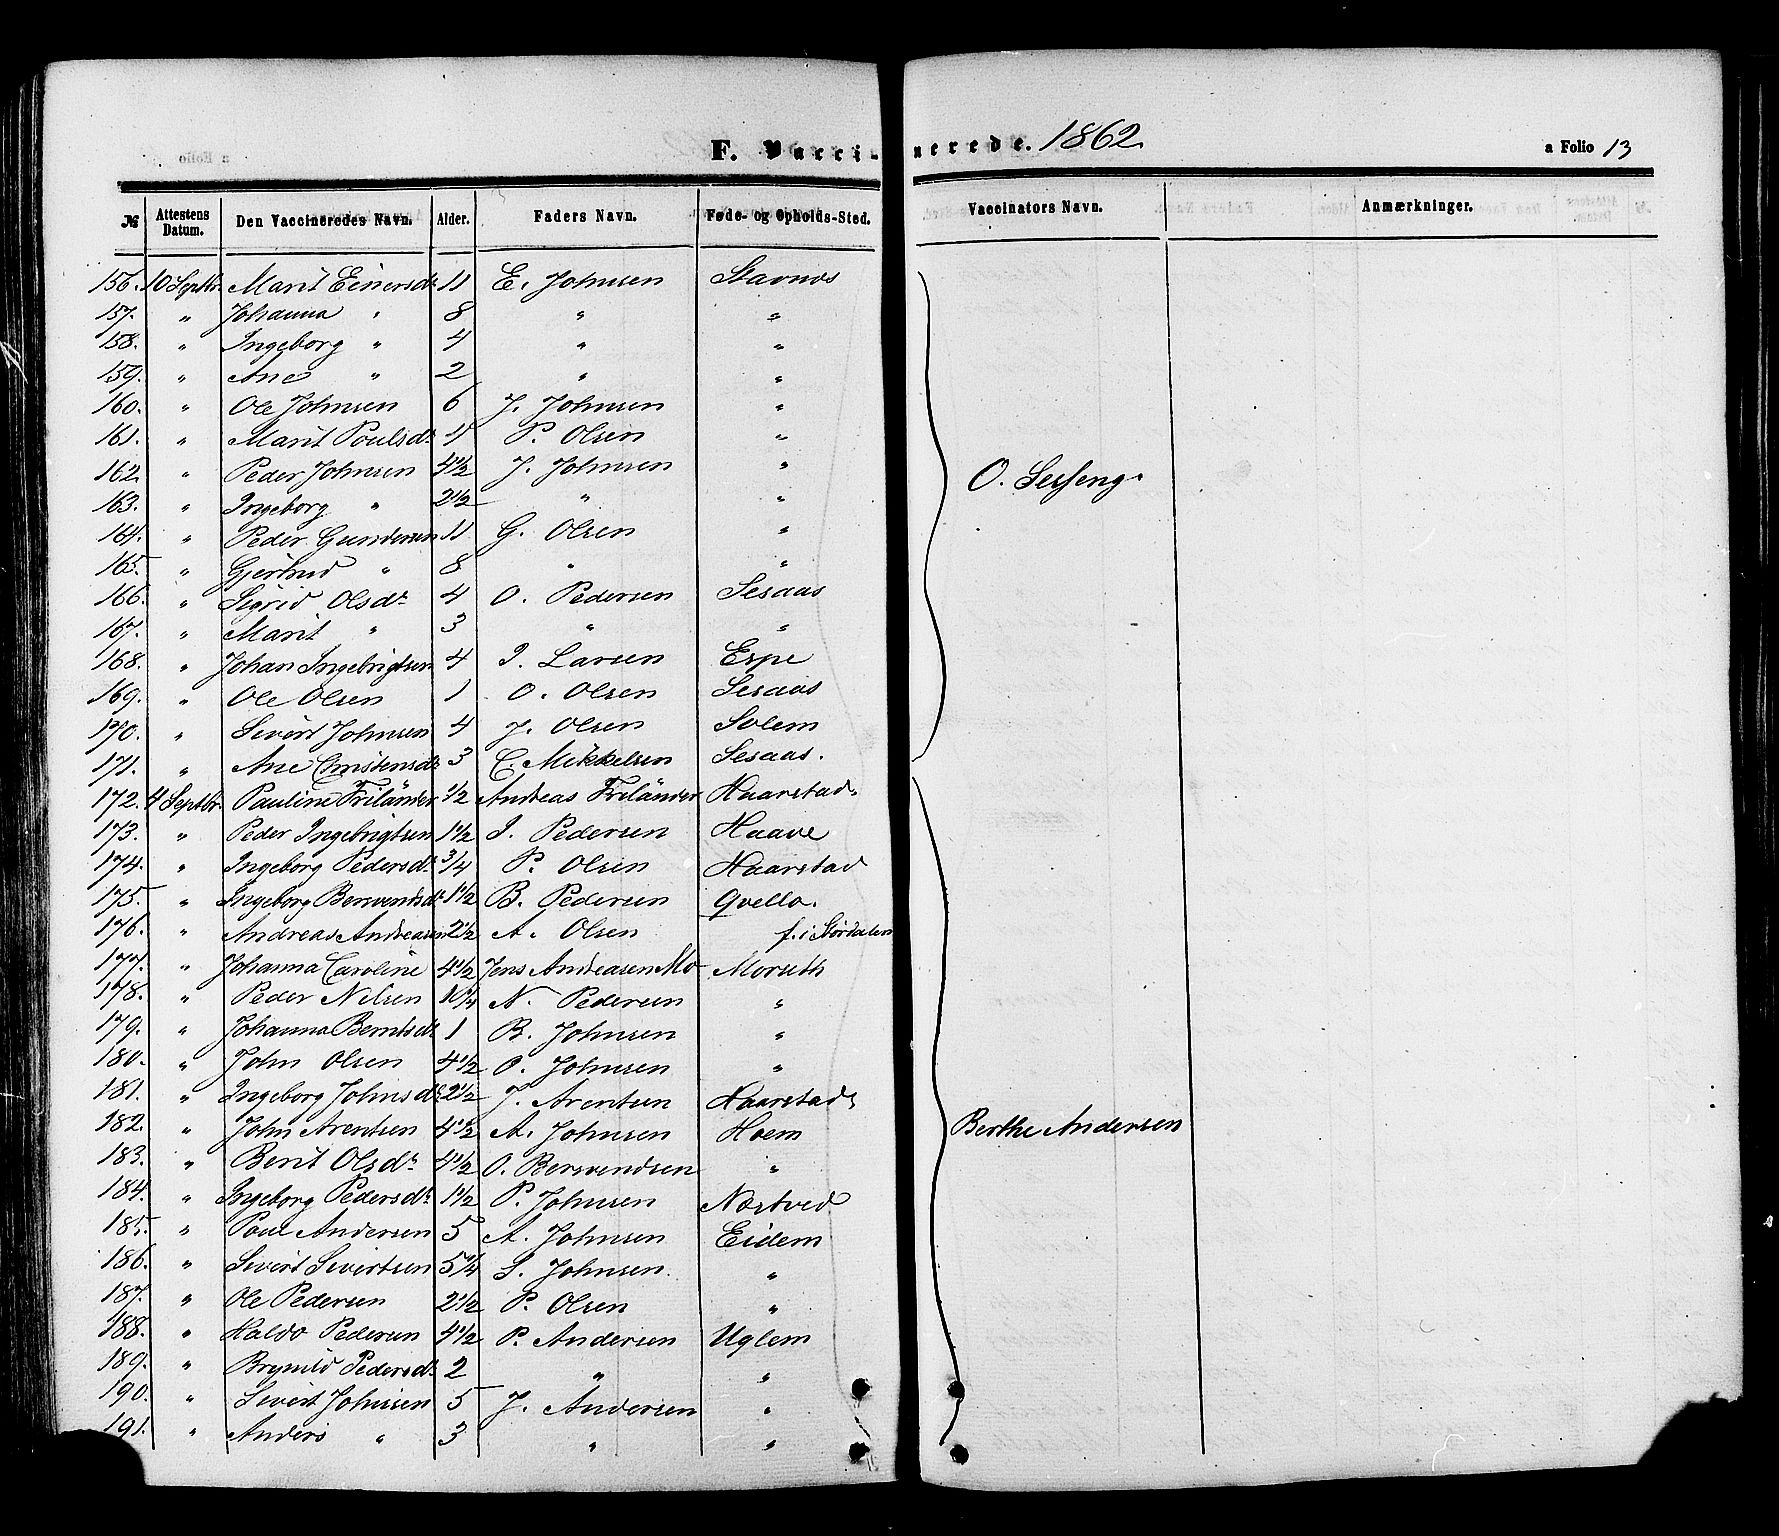 F. Vaccinerede. 1862. a Folio 13
№ Attestens Datum. Den Vaccineredes Navn. Alder. Faders Navn. Føde- og Opholds-Sted. Vaccinators Navn. Anmærkninger.
156. 10 Septbr. Marit Einersdr 11 E. Johnsen Stavnes
157. " Johanna " 8 " "
158. " Ingeborg " 4 " "
159. " Ane " 2 " "
160. " Ole Johnsen 6 J. Johnsen "
161. " Marit Poulsdr 11 P. Olsen "
162. " Peder Johnsen 4 1/2 J. Johnsen " O. Sesseng.
163. " Ingeborg " 2 1/2 " "
164. " Peder Gundersen 11 G. Olsen "
165. " Gjertrud " 8 " "
166. " Sigrid Olsdr 4 O. Pedersen Sesaas
167. " Marit " 3 " "
168. " Johan Ingebrigtsen 4 I. Larsen Espe
169. " Ole Olsen 1 O. Olsen Sesaas
170. " Sivert Johnsen 4 J. Olsen Solem
171. " Ane Christensdr 3 C. Mikkelsen Sesaas.
172. 4 Septbr. Pauline Friländer 1/2 Andreas Friländer Haarstad.
173. " Peder Ingebrigtsen 1 1/2 I. Pedersen Haave
174. " Ingeborg Pedersdr 3/4 P. Olsen Haarstad
175. " Ingeborg Bersventsdr 1 1/2 B. Pedersen Qvello.
176. " Andreas Andreasen 2 1/2 A. Olsen f. i Størdalen
177. " Johanna Caroline 4 1/2 Jens Andreasen Mo Morseth
178. " Peder Nilsen 10 1/4 N. Pedersen "
179. " Johanna Berntsdr 1 B. Johnsen "
180. " John Olsen 4 1/2 O. Johnsen "
181. " Ingeborg Johnsdr 2 1/2 J. Arentsen Haarstad.
182. " John Arentsen 4 1/2 A. Johnsen Hoem Berthe Andersen
183. " Berit Olsdr 4 1/2 O. Bersvendsen "
184. " Ingeborg Pedersdr 1 1/2 P. Johnsen Næstved
185. " Poul Andersen 5 A. Johnsen Eidem
186. " Sivert Sivertsen 5 1/4 S. Johnsen. "
187. " Ole Pedersen 2 1/2 P. Olsen "
188. " Haldo Pedersen 4 1/2 P. Andersen Uglem
189. " Brynild Pedersdr 2 " "
190. " Sivert Johnsen 5 J. Andersen "
191. " Anders " 3 " "